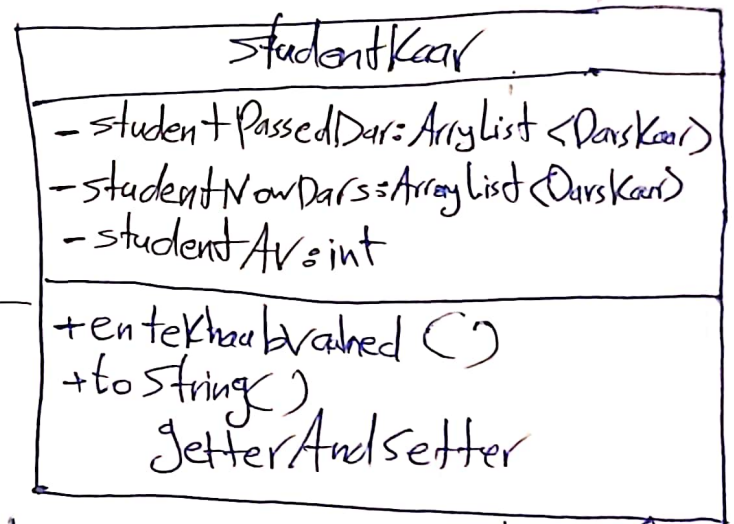 studentKaar
- studentPassedDar: ArryList <DarsKaar>
- studentNowDars: ArrayList <DarsKaar>
- studentAv: int
+ entekhaabvahed ()
+ toString()
getterAndsetter